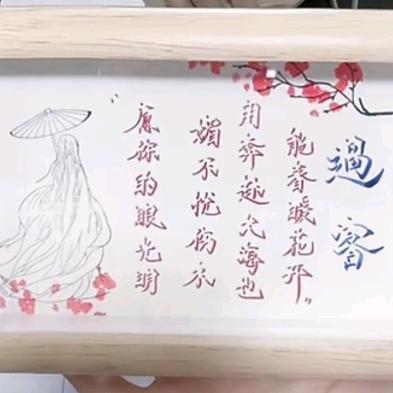 過
“愿你的眼光明
媚不忧伤不
用奔赴大海也
能春暖花开”